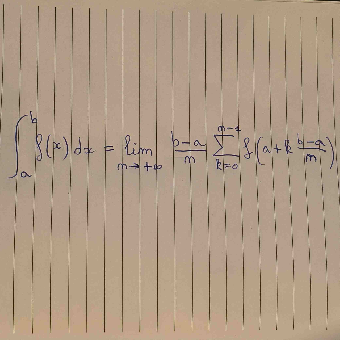 ∫_a^b f(x) dx = lim_{n→+∞} \frac{b-a}{n} ∑_{k=0}^{n-1} f(a+k \frac{b-a}{n})